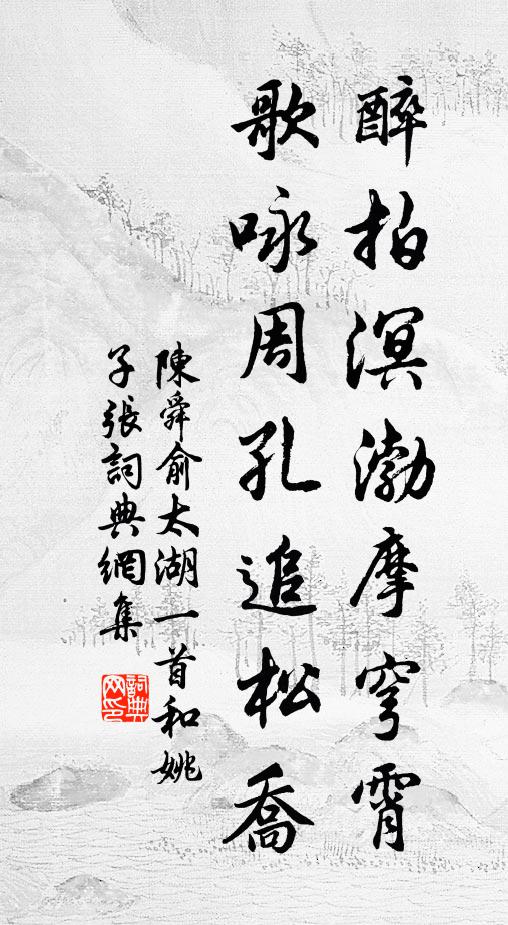 醉拍溟渤摩穹霄
歌咏周孔追松喬
陳舜俞太湖一首和姚
子張詞典網集
詞典
网印